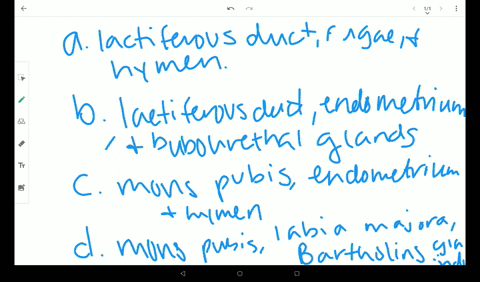 a. lactiferous duct, rugae, +
hymen.
b. lactiferous duct, endometrium
/ + bubourethal glands
c. mons pubis, endometrium
+ hymen
d. mons pubis, labia majora,
Bartholins gla